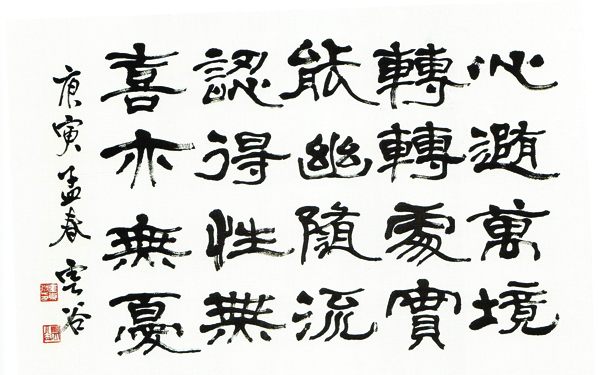 心隨萬境
轉轉處實
能幽隨流
認得性無
喜亦無憂
庚寅孟春 雲谷